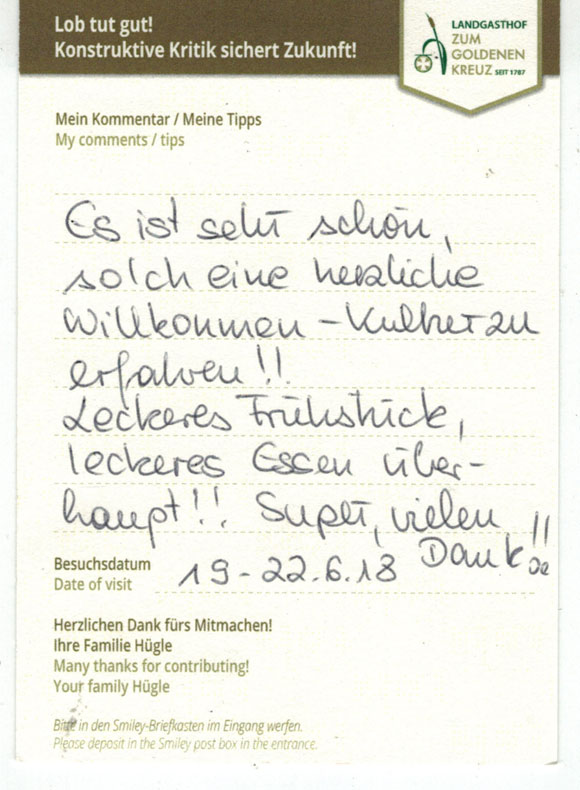 Lob tut gut!
Konstruktive Kritik sichert Zukunft!
LANDGASTHOF
ZUM
GOLDENEN
KREUZ SEIT 1787
Mein Kommentar / Meine Tipps
My comments / tips
Es ist sehr schön,
solch eine herzliche
Willkommen - Kultur zu
erfahren!!
Leckeres Frühstück,
leckeres Essen über-
haupt!! Super, vielen
Dank!!
Besuchsdatum
Date of visit
19 - 22.6.18
Herzlichen Dank fürs Mitmachen!
Ihre Familie Hügle
Many thanks for contributing!
Your family Hügle
Bitte in den Smiley-Briefkasten im Eingang werfen.
Please deposit in the Smiley post box in the entrance.